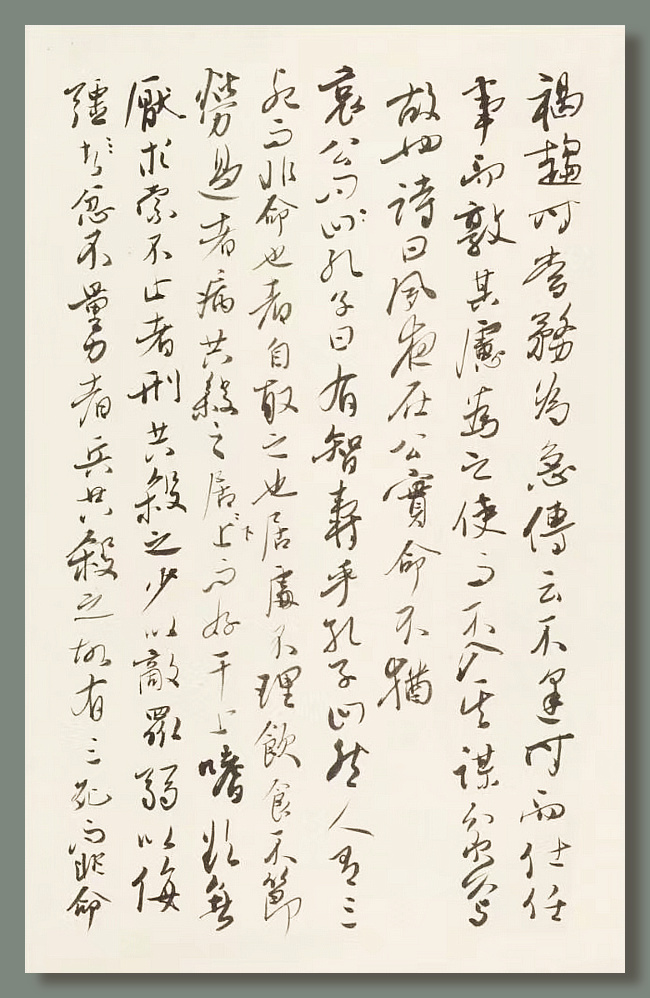 禍趨時當務為急傳云不逢時而仕任
事而敦其慮為之使而不入其謀貧焉
故也詩曰夙夜在公實命不猶
哀公問曰孔子曰有智壽乎孔子曰然人有三
死而非命也者自取之也居處不理飲食不節
勞過者病共殺之居下而好干上嗜欲無
厭求索不止者刑共殺之少以敵眾弱以侮
彊忿不量力者兵共殺之故有三死而非命